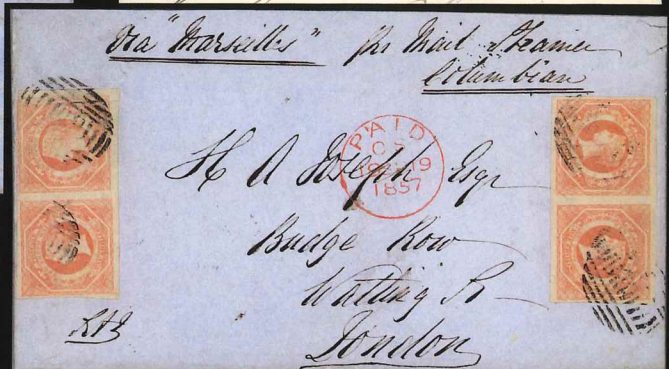 Via "Marseilles" per Mail Steamer
Columbian
PAID
1857
H A Joseph Esqr
Budge Row
Watling St
London